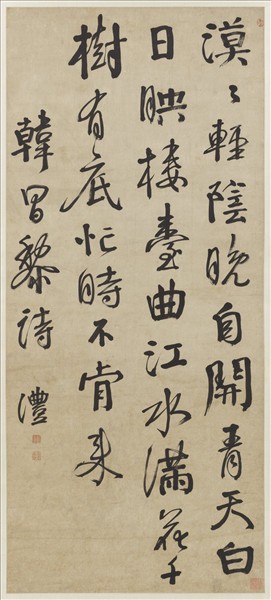 漠〻輕陰晚自開青天白
日映樓臺曲江水滿花千
樹有底忙時不肯来
韓昌黎詩 澧